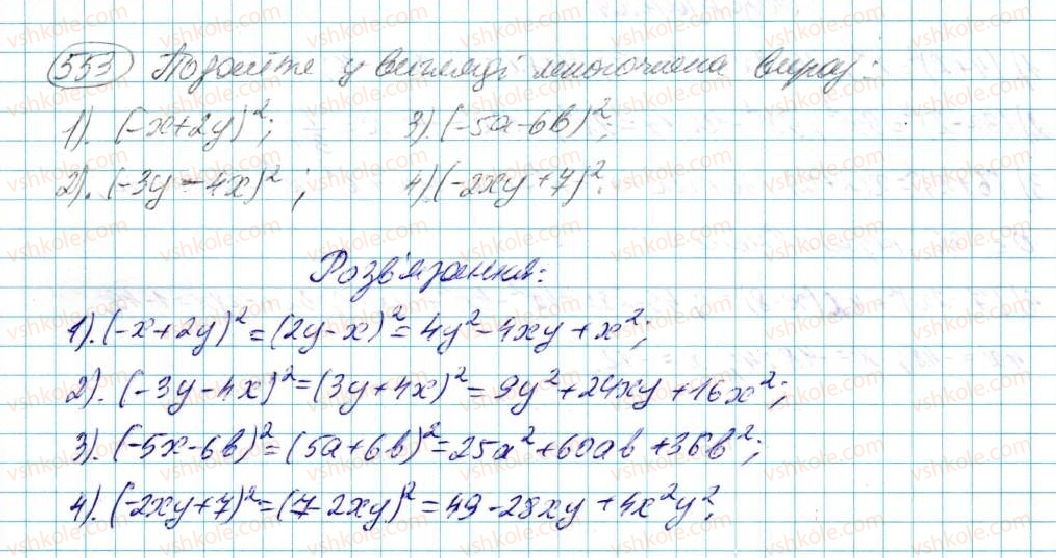 553 Подайте у вигляді многочлена вираз:
1). (-x+2y)²; 3). (-5a-6b)²;
2). (-3y-4x)²; 4) (-2xy+7)².
Розв'язання:
1). (-x+2y)²=(2y-x)²=4y²-4xy+x²;
2). (-3y-4x)²=(3y+4x)²=9y²+24xy+16x²;
3). (-5x-6b)²=(5a+6b)²=25a²+60ab+36b²;
4). (-2xy+7)²=(7-2xy)²=49-28xy+4x²y²;